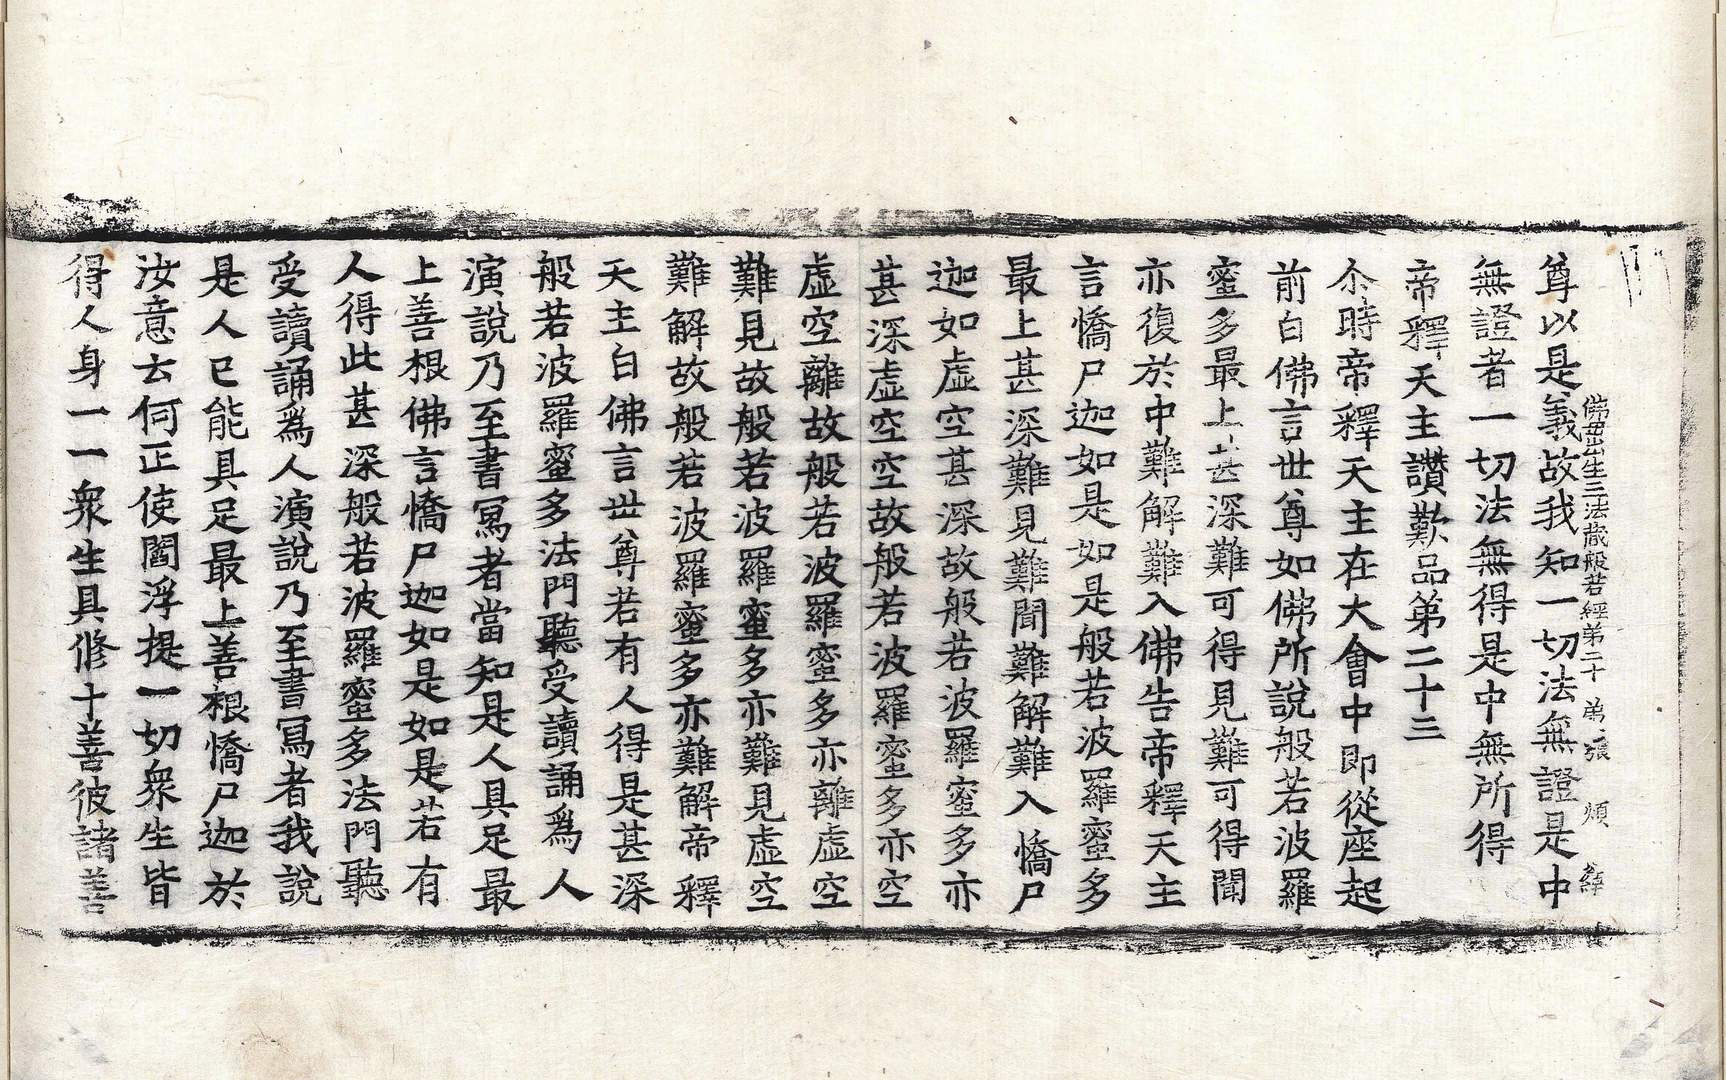 佛母出生三法藏般若經第二十 第二張 煩
尊以是義故我知一切法無證是中
無證者一切法無得是中無所得
帝釋天主讚歎品第二十三
尒時帝釋天主在大會中即從座起
前白佛言世尊如佛所說般若波羅
蜜多最上甚深難可得見難可得聞
亦復於中難解難入佛告帝釋天主
言憍尸迦如是如是般若波羅蜜多
最上甚深難見難聞難解難入憍尸
迦如虛空甚深故般若波羅蜜多亦
甚深虛空空故般若波羅蜜多亦空
虛空離故般若波羅蜜多亦離虛空
難見故般若波羅蜜多亦難見虛空
難解故般若波羅蜜多亦難解帝釋
天主白佛言世尊若有人得是甚深
般若波羅蜜多法門聽受讀誦爲人
演說乃至書寫者當知是人具足最
上善根佛言憍尸迦如是如是若有
人得此甚深般若波羅蜜多法門聽
受讀誦爲人演說乃至書寫者我說
是人已能具足最上善根憍尸迦於
汝意云何正使閻浮提一切衆生皆
得人身一一衆生具修十善彼諸善